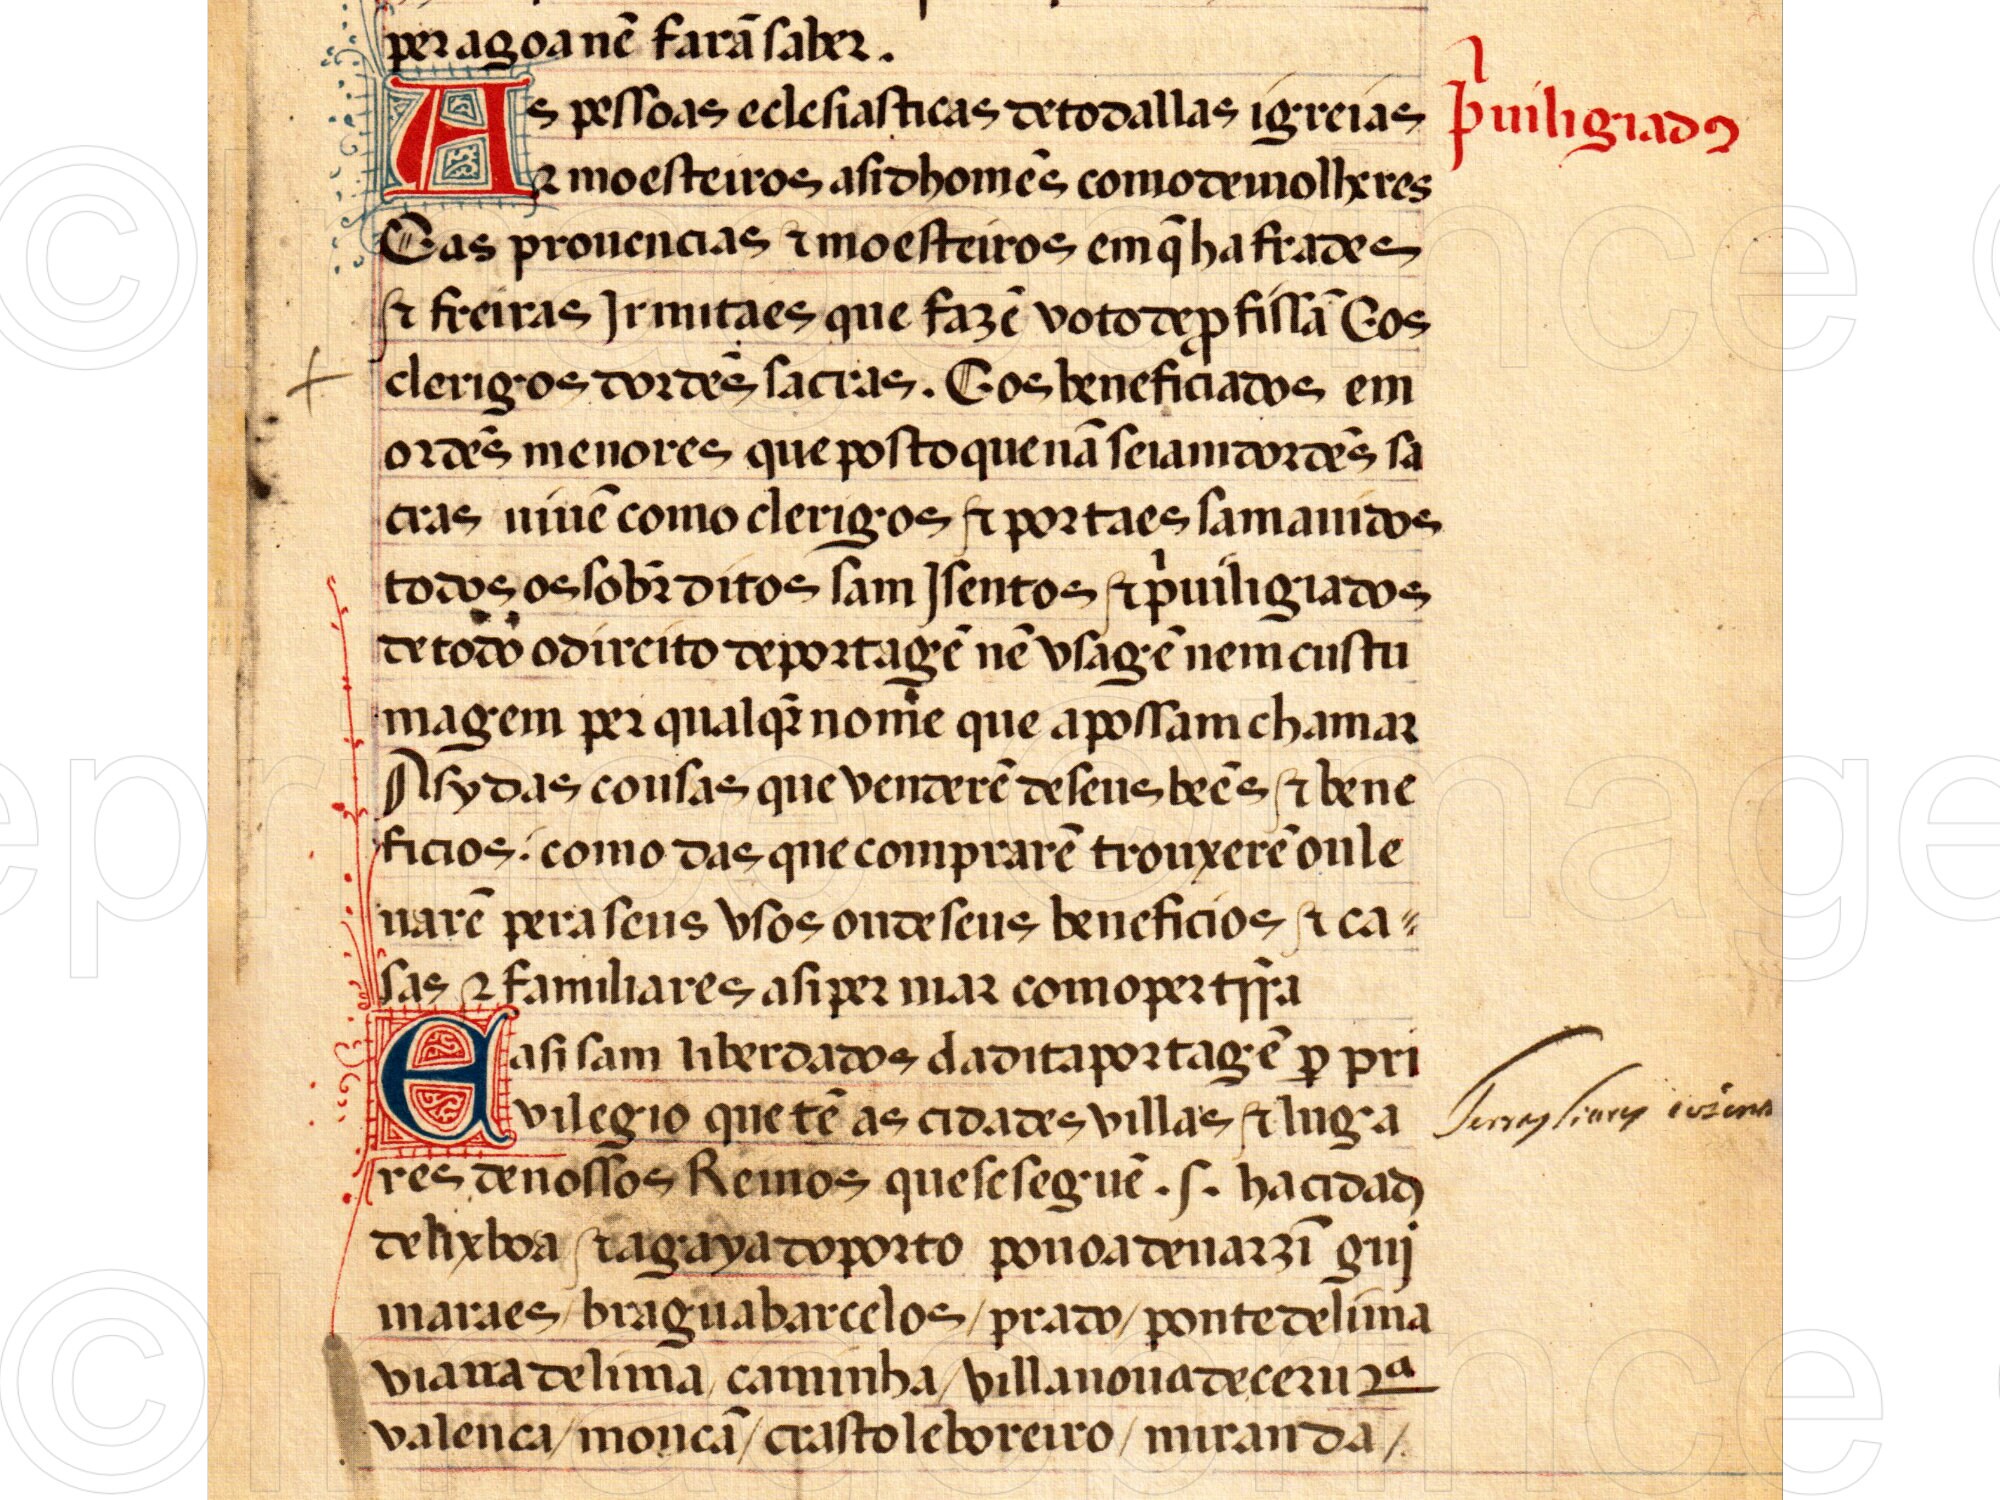 per agoa nẽ farã saber.
As pessoas eclesiasticas de todallas igreias
⁊ moesteiros asi dhomẽs como de molheres
E as prouencias ⁊ moesteiros em q̃ ha frades
⁊ freiras Irmitaes que fazẽ voto de ꝓfissã E os
clerigos dordẽs sacras. E os beneficiados em
ordẽs menores que posto que nã seiam dordẽs sa
cras viuẽ como clerigos ⁊ por taes sam auidos
todos os sobr̃ditos sam Isentos ⁊ pͥuiligiados
de todo o direito de portagẽ nẽ vsagẽ nem custu
magem per qualqr̃ nome que a possam chamar
Asy das cousas que venderẽ de seus beẽs ⁊ bene
ficios. como das que comprarẽ trouxerẽ ou le
uarẽ pera seus vsos ou de seus beneficios ⁊ ca〃
sas ⁊ familiares asi per mar como per tr̃ra
E asi sam liberdados da dita portagẽ ꝑ pri
vilegio que tẽ as cidades villas ⁊ luga
res de nossos Reinos que se seguẽ .s. ha cidad
de lixboa ⁊ a gaya do porto pouoa de uarzĩ gui
maraes / bragua barcelos / prado / ponte de lima
viana de lima / caminha / villa noua de ceruᵃ
valenca / moncã / crasto leboreiro / miranda /
pͥuiligiados